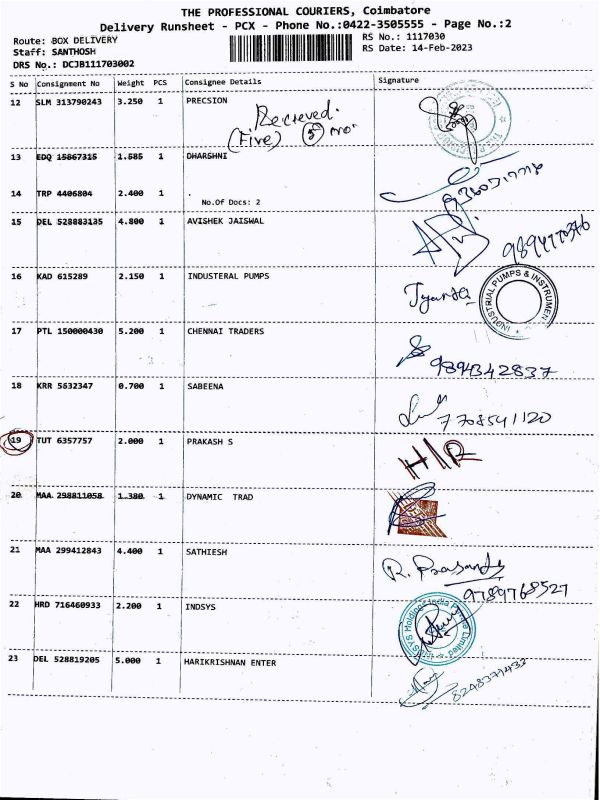 THE PROFESSIONAL COURIERS, Coimbatore
Delivery Runsheet - PCX - Phone No.:0422-3505555 - Page No.:2
Route: BOX DELIVERY
RS No.: 1117030
Staff: SANTHOSH
RS Date: 14-Feb-2023
DRS No.: DCJB111703002
S No Consignment No Weight PCS Consignee Details Signature
12 SLM 313790243 3.250 1 PRECSION
Recieved.
(Five) 5 no.
13 EDQ 15867315 1.585 1 DHARSHNI
14 TRP 4406804 2.400 1 .
No.Of Docs: 2
15 DEL 528883135 4.800 1 AVISHEK JAISWAL
16 KAD 615289 2.150 1 INDUSTERAL PUMPS
INDUSTRIAL PUMPS & INSTRUMEN
17 PTL 150000430 5.200 1 CHENNAI TRADERS
9894342837
18 KRR 5632347 0.700 1 SABEENA
7708541120
19 TUT 6357757 2.000 1 PRAKASH S
H/R
20 MAA 298811058 1.380 1 DYNAMIC TRAD
21 MAA 299412843 4.400 1 SATHIESH
9789768527
22 HRD 716460933 2.200 1 INDSYS
23 DEL 528819205 5.000 1 HARIKRISHNAN ENTER
8248371432